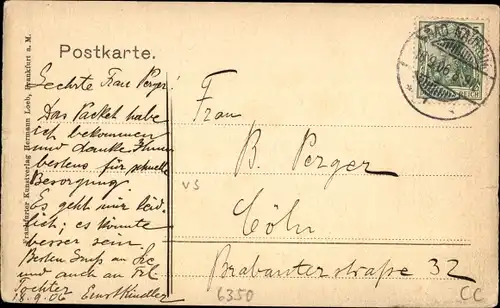 Postkarte.
Frankfurter Kunstverlag Hermann Loeb, Frankfurt a. M.
Geehrte Frau Perger!
Das Packet habe
ich bekommen
und danke Ihnen
bestens für schnelle
Besorgung.
Es geht mir leid-
lich; es könnte
besser sein.
Besten Gruß an Sie
und auch an Frl.
Tochter
18.9.06 Ernst Kindler
Frau
B. Perger
Cöln
Brabanterstraße 32
BAD NAUHEIM
REICH
VS
6350
CC